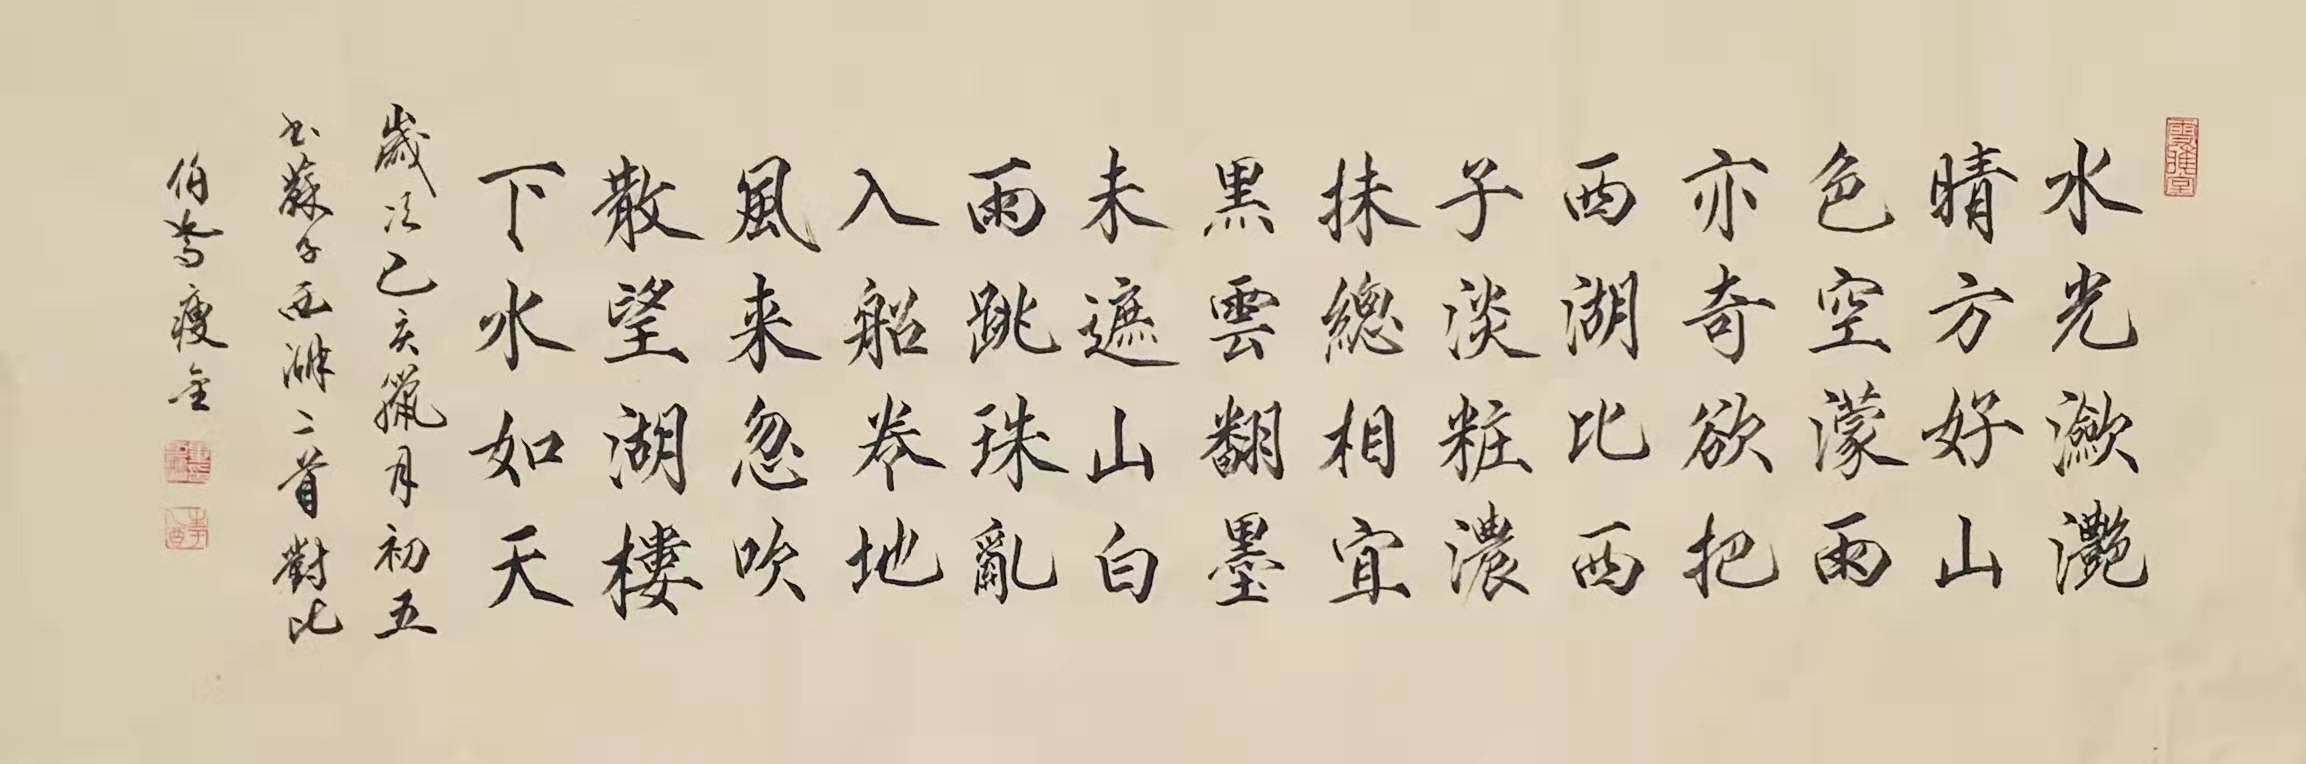 水光瀲灩
晴方好山
色空濛雨
亦奇欲把
西湖比西
子淡粧濃
抹總相宜
黑雲翻墨
未遮山白
雨跳珠亂
入船卷地
風来忽吹
散望湖樓
下水如天
歲次己亥臘月初五
書蘇子西湖二首對比
伯鴦瘦金